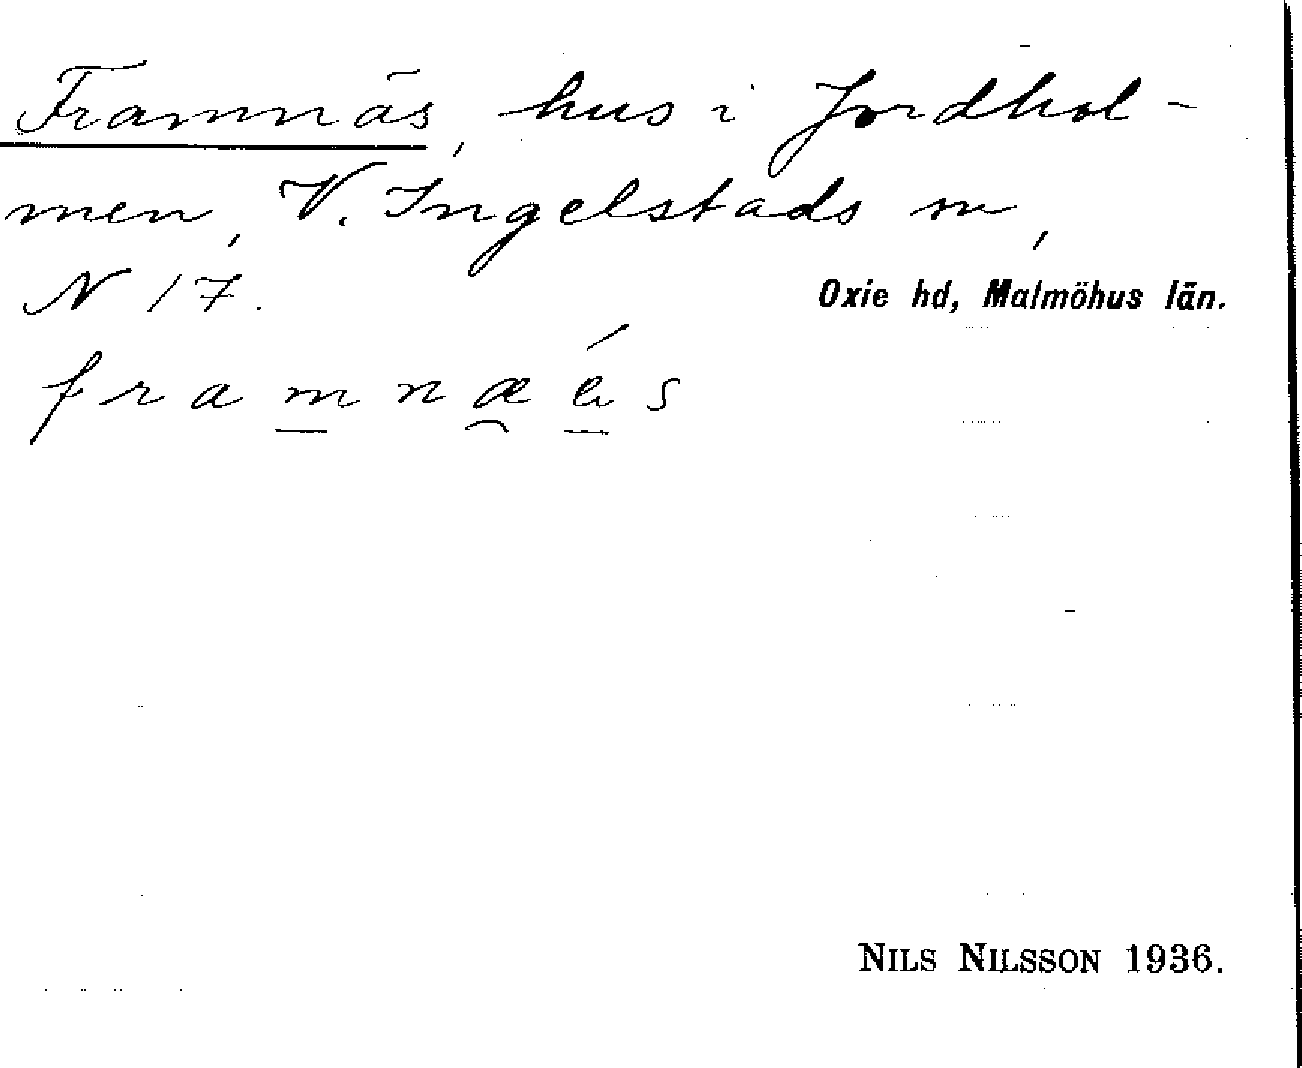 Framnäs, hus i Jordhol-
men, V. Ingelstads sn,
N 17.
Oxie hd, Malmöhus län.
framnæés
NILS NILSSON 1936.